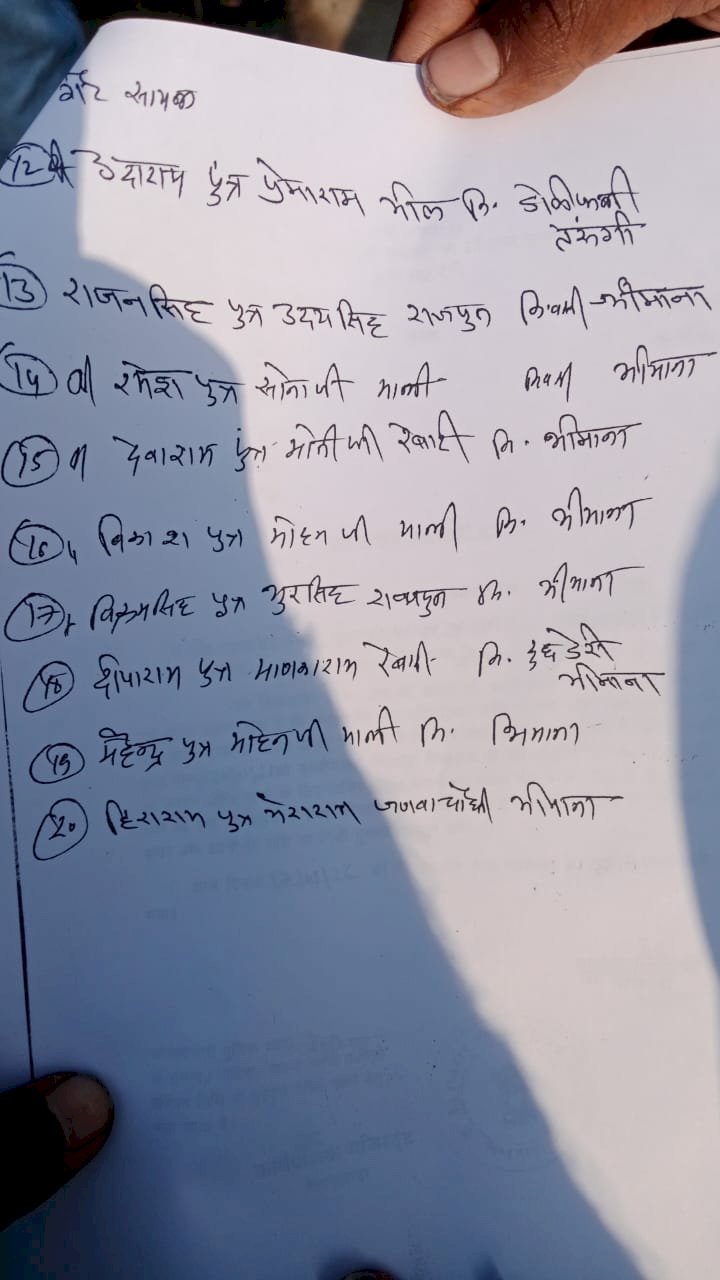 गैर सायल
12 श्री उदाराम पुत्र प्रेमाराम भील नि. डोलीफली
तरुंगी
13 राजनसिंह पुत्र उदयसिंह राजपुत निवासी भीमाना
14 श्री रमेश पुत्र सोनाजी माली निवासी भीमाना
15 देवाराम पुत्र मोतीजी रेबारी नि. भीमाना
16 विकाश पुत्र मोहनजी माली नि. भीमाना
17 विक्रमसिंह पुत्र भुरसिंह राजपुत नि. भीमाना
18 दीपाराम पुत्र भाणकाराम रेबारी नि.
भीमाना
19 महेन्द्र पुत्र मोहनजी माली नि. भिमाना
20 हिराराम पुत्र नेराराम जणवा चौधरी भीमाना